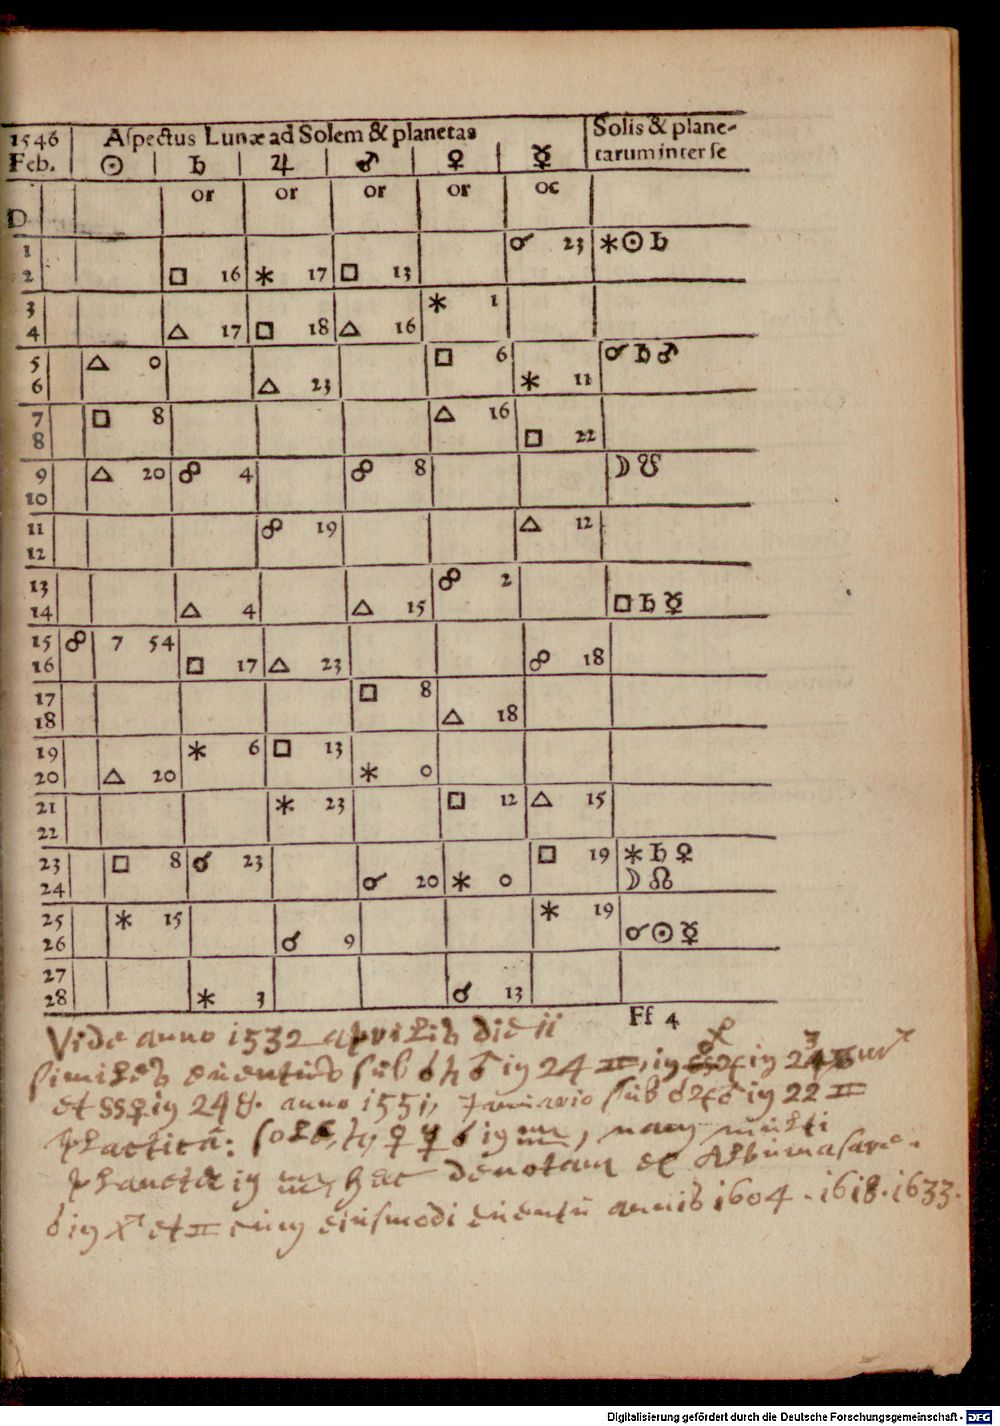 1546 Aſpectus Lunæ ad Solem & planetas Solis & plane-
Feb. ☉ ♄ ♃ ♂ ♀ ☿ tarum inter ſe
D or or or or oc
1 ☌ 23 ⚹ ☉ ♄
2 □ 16 ⚹ 17 □ 13
3 ⚹ 1
4 △ 17 □ 18 △ 16
5 △ 0 □ 6 ☌ ♄ ♂
6 △ 23 ⚹ 11
7 □ 8 △ 16
8 □ 22
9 △ 20 ☍ 4 ☍ 8 ☽ ☋
10
11 ☍ 19 △ 12
12
13 ☍ 2
14 △ 4 △ 15 □ ♄ ☿
15 ☍ 7 54
16 □ 17 △ 23 ☍ 18
17 □ 8
18 △ 18
19 ⚹ 6 □ 13
20 △ 20 ⚹ 0
21 ⚹ 23 □ 12 △ 15
22
23 □ 8 ☌ 23 □ 19 ⚹ ♄ ♀
24 ☌ 20 ⚹ 0 ☽ ☊
25 ⚹ 15 ⚹ 19
26 ☌ 9 ☌ ☉ ☿
27
28 ⚹ 3 ☌ 13
Ff 4
Vide anno 1532 aprilis die 11
similes euentus sub ☌ ♄ ♂ in 24 ♊, in
et in 24 anno 1551, Januario sub ☌ ♃ ♂ in 22 ♊
in nam multi
planetæ in hæc denotant et Albumasare.
☌ in et ♊ cum eiusmodi euentu annis 1604. 1618. 1633.
Digitalisierung gefördert durch die Deutsche Forschungsgemeinschaft - DFG